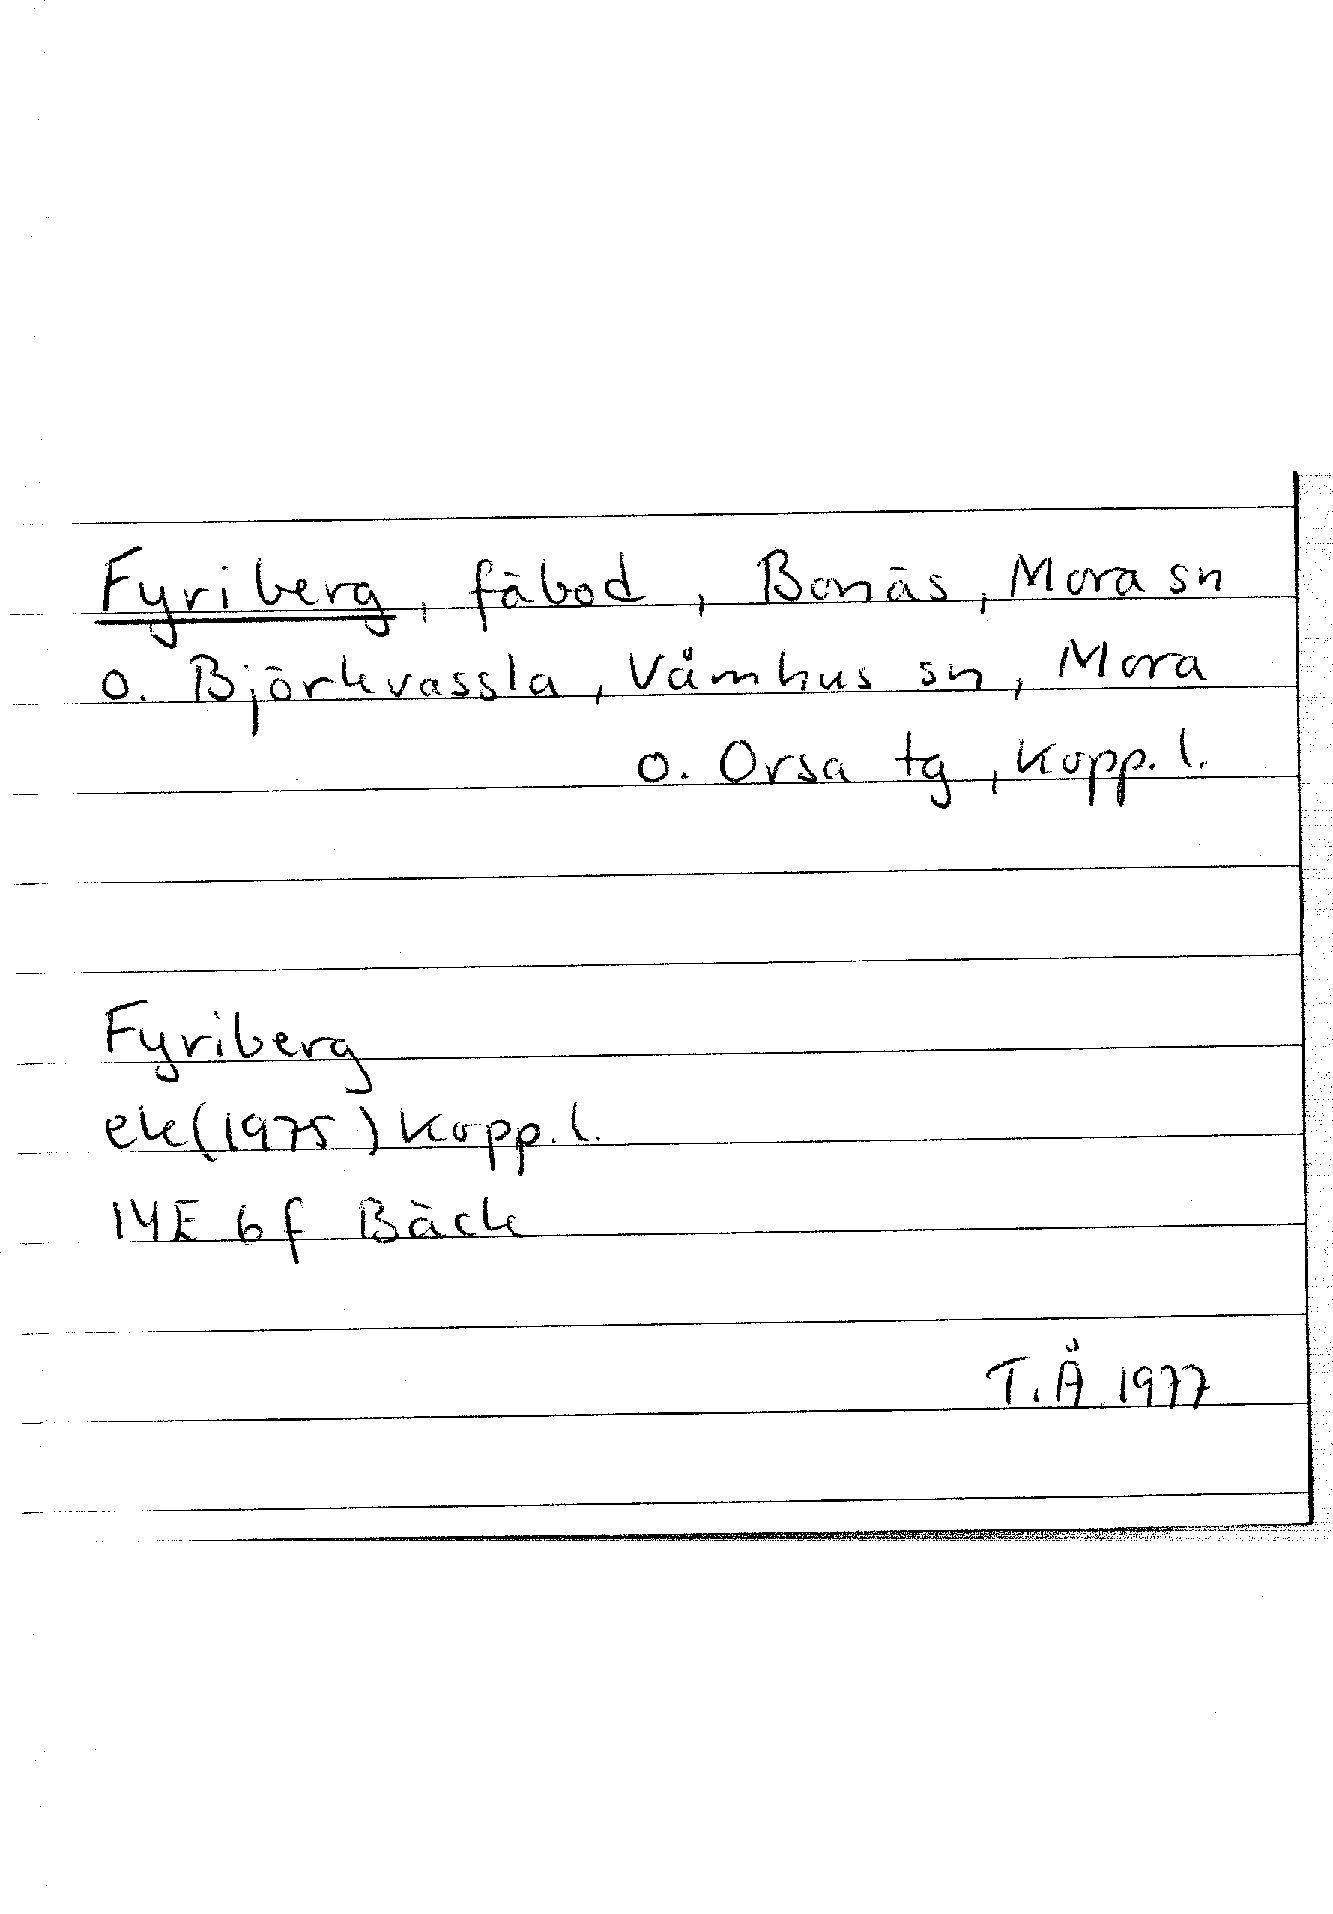 Fyriberg, fäbod, Bonäs, Mora sn
o. Björkvassla, Våmhus sn, Mora
o. Orsa tg, Kopp. l.
Fyriberg
ek (1975) Kopp. l.
14E 6f Bäck
T. Å. 1977